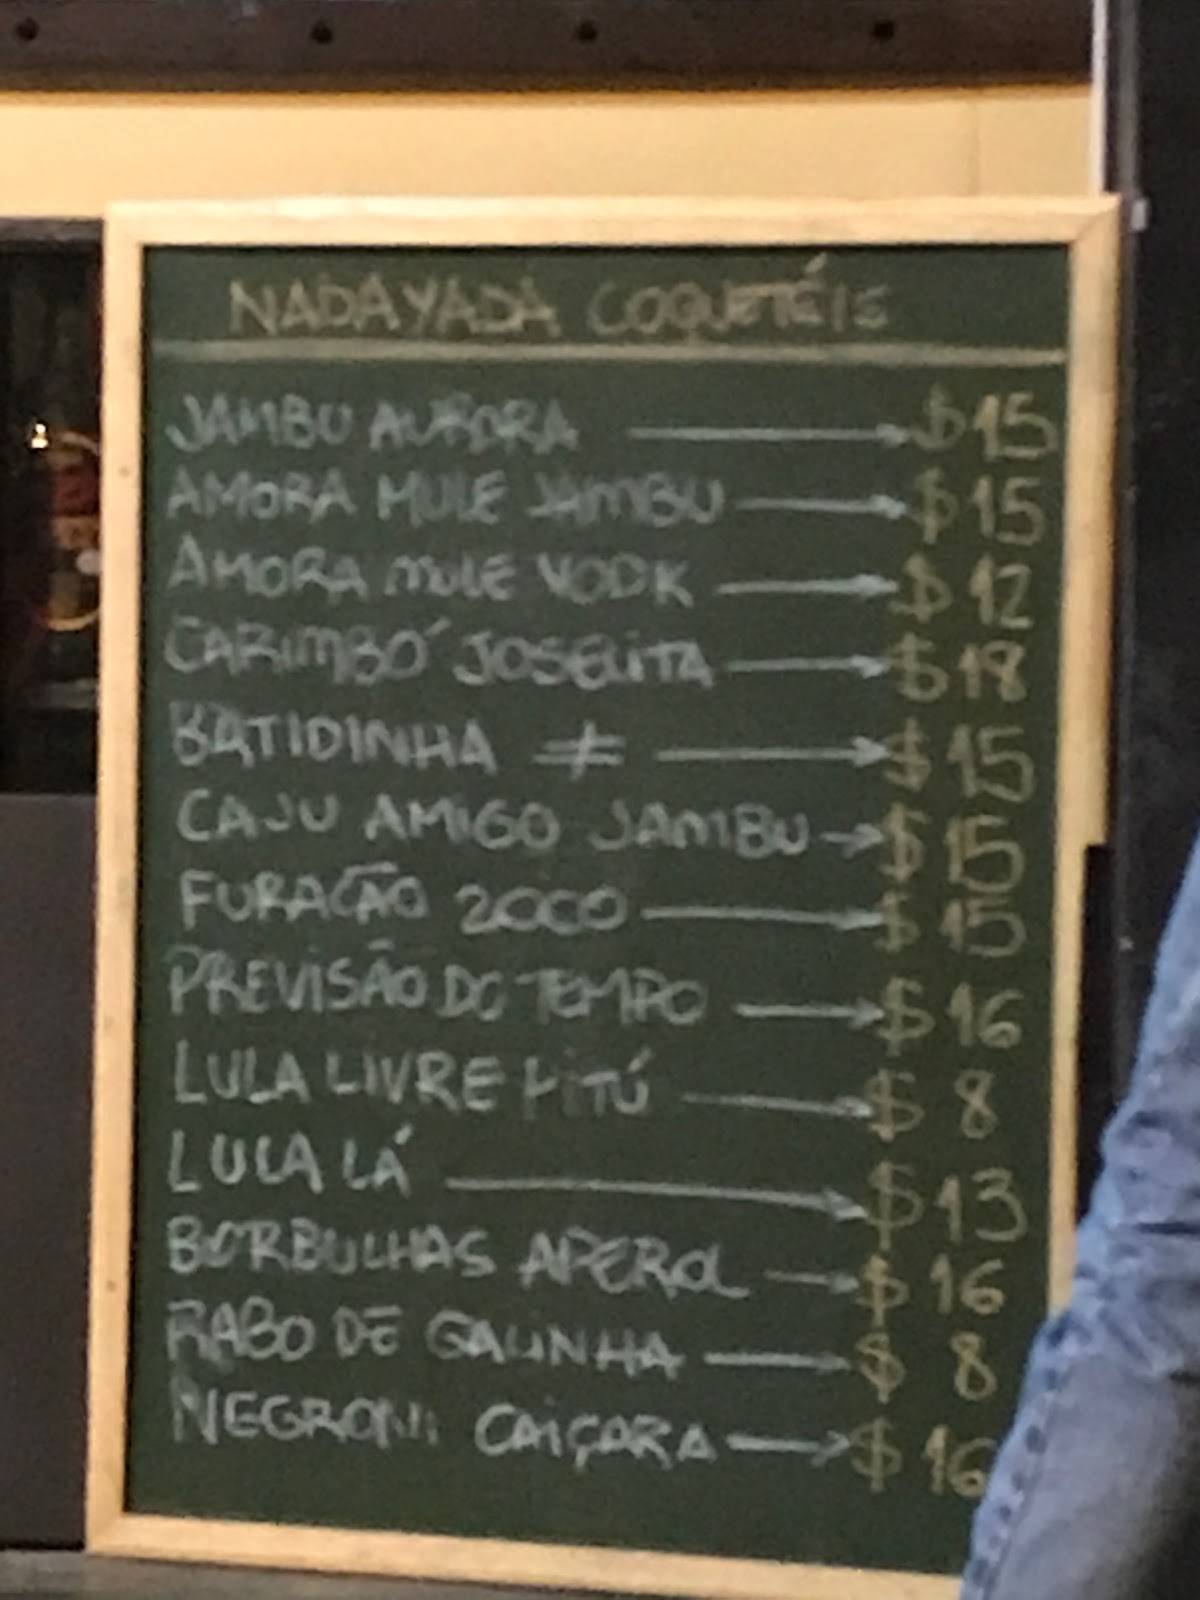 NADAYADA COQUETÉIS
JAMBU AURORA → $15
AMORA MULE JAMBU → $15
AMORA MULE VODK → $12
CARIMBÓ JOSELITA → $18
BATIDINHA ≠ → $15
CAJU AMIGO JAMBU → $15
FURACÃO 2000 → $15
PREVISÃO DO TEMPO → $16
LULA LIVRE PITÚ → $8
LULA LÁ → $13
BORBULHAS APEROL → $16
RABO DE GALINHA → $8
NEGRONI CAIÇARA → $16